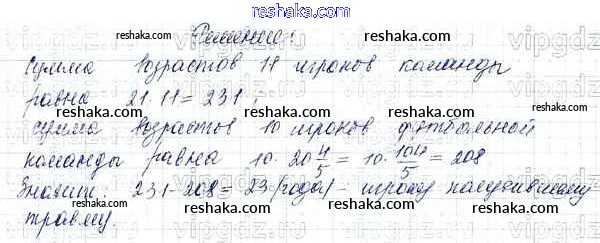 reshaka.com
Решение:
reshaka.com reshaka.com
Сумма возрастов 11 игроков команды
равна 21·11=231;
reshaka.com reshaka.com reshaka.com
сумма возрастов 10 игроков футбольной
команды равна 10·20 4/5 = 10·104/5 = 208
reshaka.com reshaka.com reshaka.com
Значит: 231-208=23(года)- игроку получившему
травму.
reshaka.com